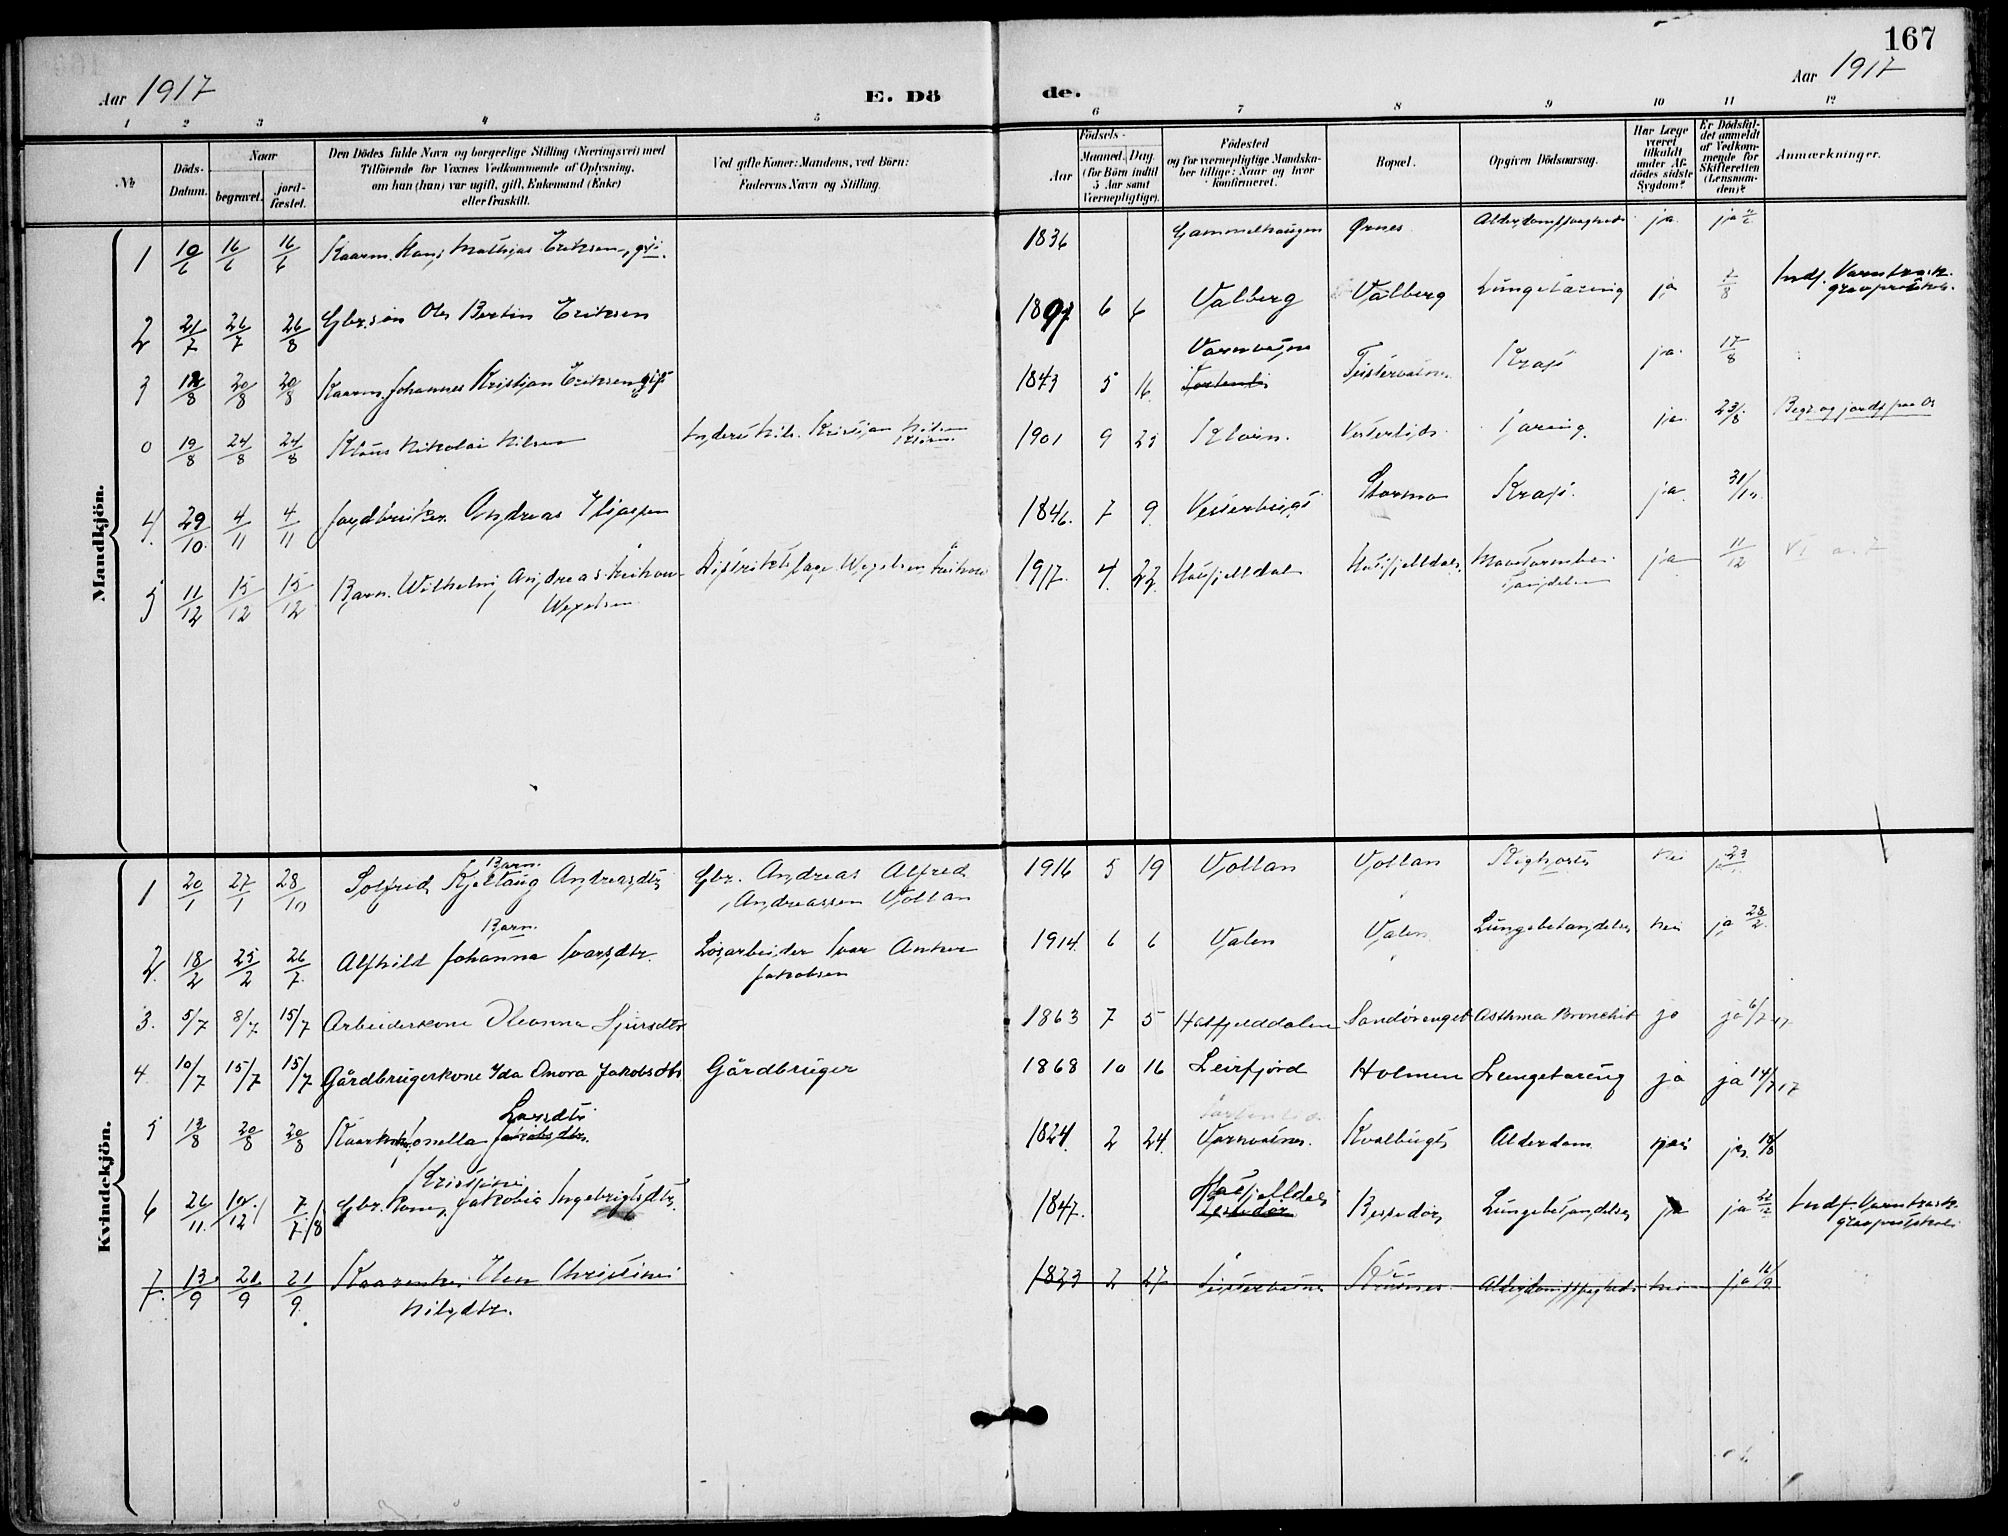 167
Aar 1917
E. Dö
de.
Aar 1917
1 2 3 4 5 6 7 8 9 10 11 12
№
Döds-Datum.
Naar
begravet.
jord-fæstet.
Den Dödes fulde Navn og borgerlige Stilling (Næringsvei) med
Tilföiende for Voxnes Vedkommende af Oplysning,
om han (hun) var ugift, gift, Enkemand (Enke)
eller fraskilt.
Ved gifte Koner: Mandens, ved Börn:
Faderens Navn og Stilling.
Födsels-
Aar
Maaned. Dag
(for Börn indtil
5 Aar samt
Værnepligtige).
Födested
og for værnepligtige Mandska-
ber tillige: Naar og hvor
konfirmeret.
Bopæl.
Opgiven Dödsaarsag.
Har Læge
været
tilkaldt
under Af-
dödes sidste
Sygdom?
Er Dödsfal-
det anmeldt
af Vedkom-
mende for
Skifteretten
(Lensman-
den)?
Anmærkninger.
Mandkjön.
1 10/6 16/6 16/6 Kaarm. Hans Mathias Eriksen, gift. 1836 Gammelhaugen Ørnes ja ja 11/6
2 21/7 26/7 26/8 Gbr.søn Ole Bertin Eriksen 1897 6 6 Valberg Valberg Lungetæring ja 2/8 Indf. Varntresk. gravprotokol.
3 18/8 20/8 20/8 Kaarm. Johannes Kristjan Eriksen gift 1843 5 16 Varnvatne Tistervatne Kraft ja 17/8
0 19/8 24/8 24/8 Klaus Nikolai Nilsen Kristjan Nilsen 1901 9 Tæring ja 23/8 Begr. og jordf. paa
4. 29/10 4/11 4/11 Jordbruker Andreas Eliassen 1846. 7 9 Vesterbugt Stormo Kraft. ja 31/10.
5 11/12 15/12 15/12 Barn. Wilhelm Andreas
Wexelsen Distriktslæge Wexelsen 1917. 4. 22 Hatfjelldal Hatfjelldal ja 11/12
Kvindekjön.
1 20/1 27/1 28/10 Barn. Solfrid Kjellaug Andreasdtr Gbr. Andreas Alfred
Andreassen Vollan 1916 5 19 Vollan Vollan Kighoste nei ja 23/1
2. 18/2 25/2 26/7 Barn. Alfhild Johanna Ivarsdtr. Løsarbeider Ivar Anker
Jakobsen 1914. 6 6 Valen Valen Lungebetændelse nei ja 28/2
3. 5/7 8/7 15/7 Arbeiderkone Oleanna Sjursdtr 1863 7 5 Hatfjelddalen Sandørenget Asthma Bronchit ja ja 6/7 17
4 10/7 15/7 15/7 Gårdbrugerkone Ida Anora Jakobsdtr Gårdbruger 1868 10 16 Leirfjord Holmen Lungetæring ja ja 14/7 17
5 13/8 20/8 20/8 Larsdtr
Jonella Jakobsdtr. 1824. 2 24. Varnvatne. Kvalbugt Alderdom nei ja. 18/8
6 26/11. Kristine
Gbr. Kone, Jakobia Ingebrigtsdtr. 1847. Hatfjelldal Lungebetændelse ja ja 22/12 Indf. Varntresk.
gravprotokol
7. 13/9 21/9 21/9 Elen Christine
Nilsdtr. 1823 2 27 Tistervatne Alderdomssvaghed nei ja 16/9